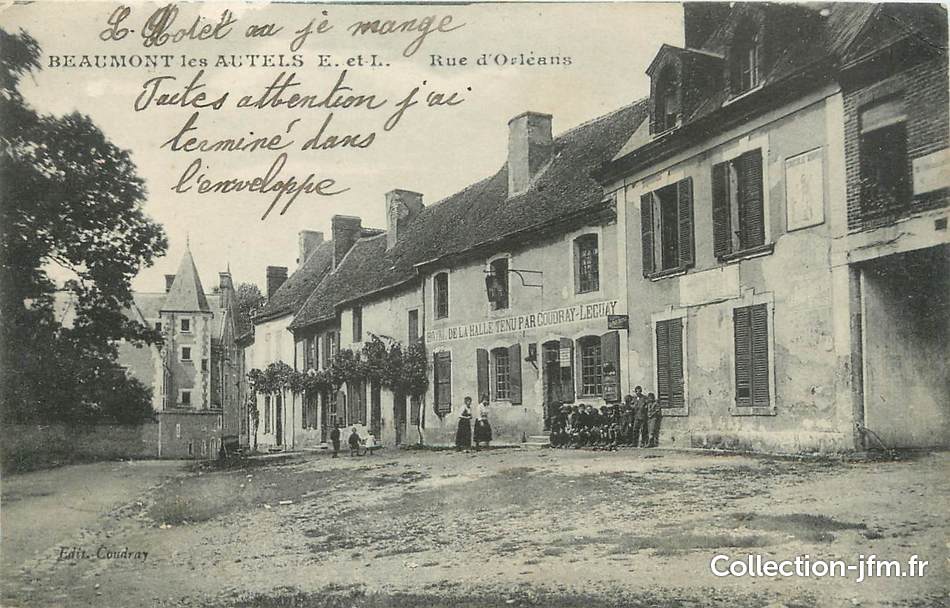 L. Hotel au je mange
BEAUMONT les AUTELS E. et L. Rue d'Orléans
Faites attention j'ai
terminé dans
l'enveloppe
HOTEL DE LA HALLE TENU PAR COUDRAY-LEGUAY
Edit. Coudray
Collection-jfm.fr